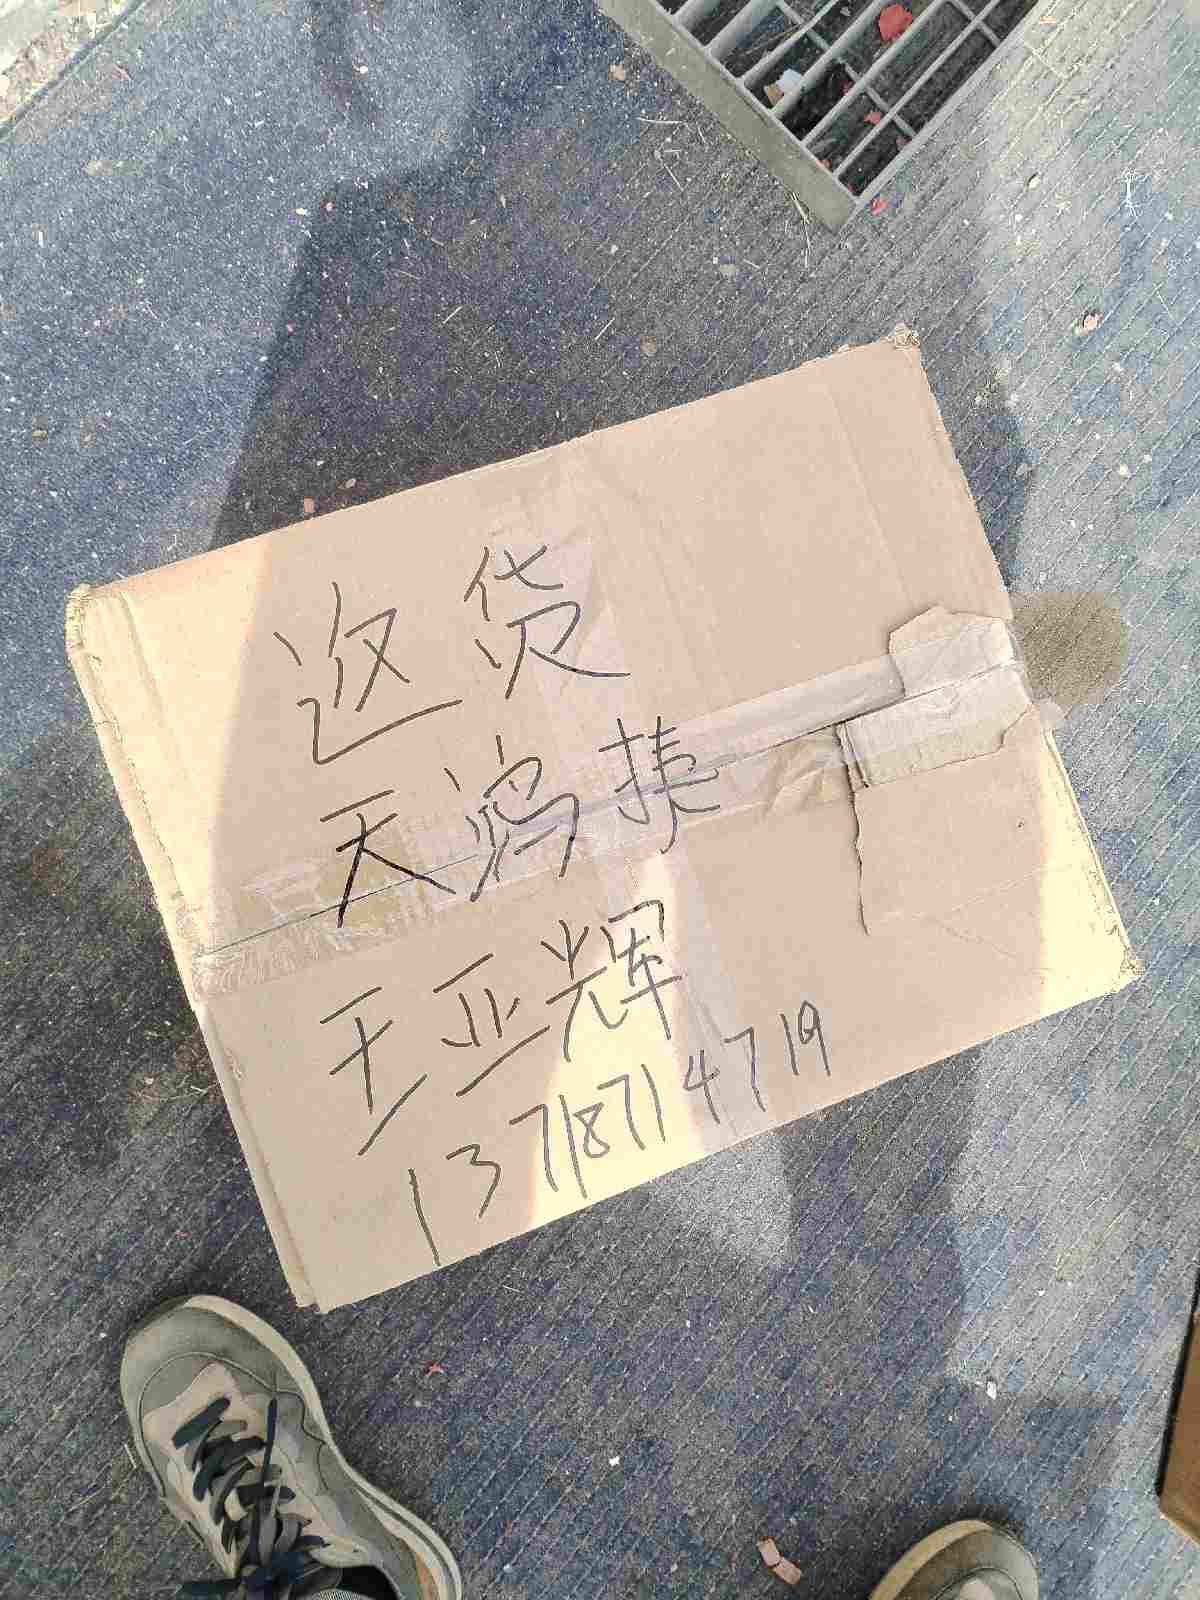 返货
天鸿捷
王亚辉
13718714719